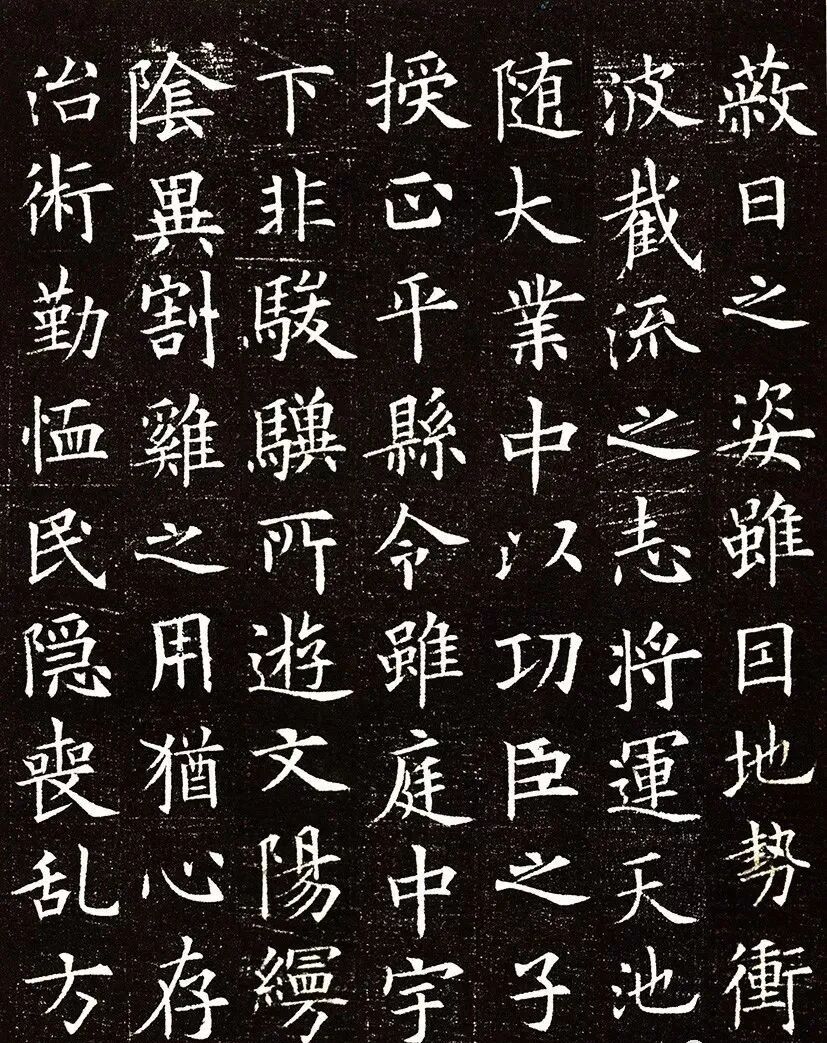 蔽日之姿雖囙地勢衝
波截流之志将運天池
随大業中以功臣之子
授正平縣令雖庭中宇
下非駿驥所遊文陽縵
陰異割雞之用猶心存
治術勤恤民隠喪乱方